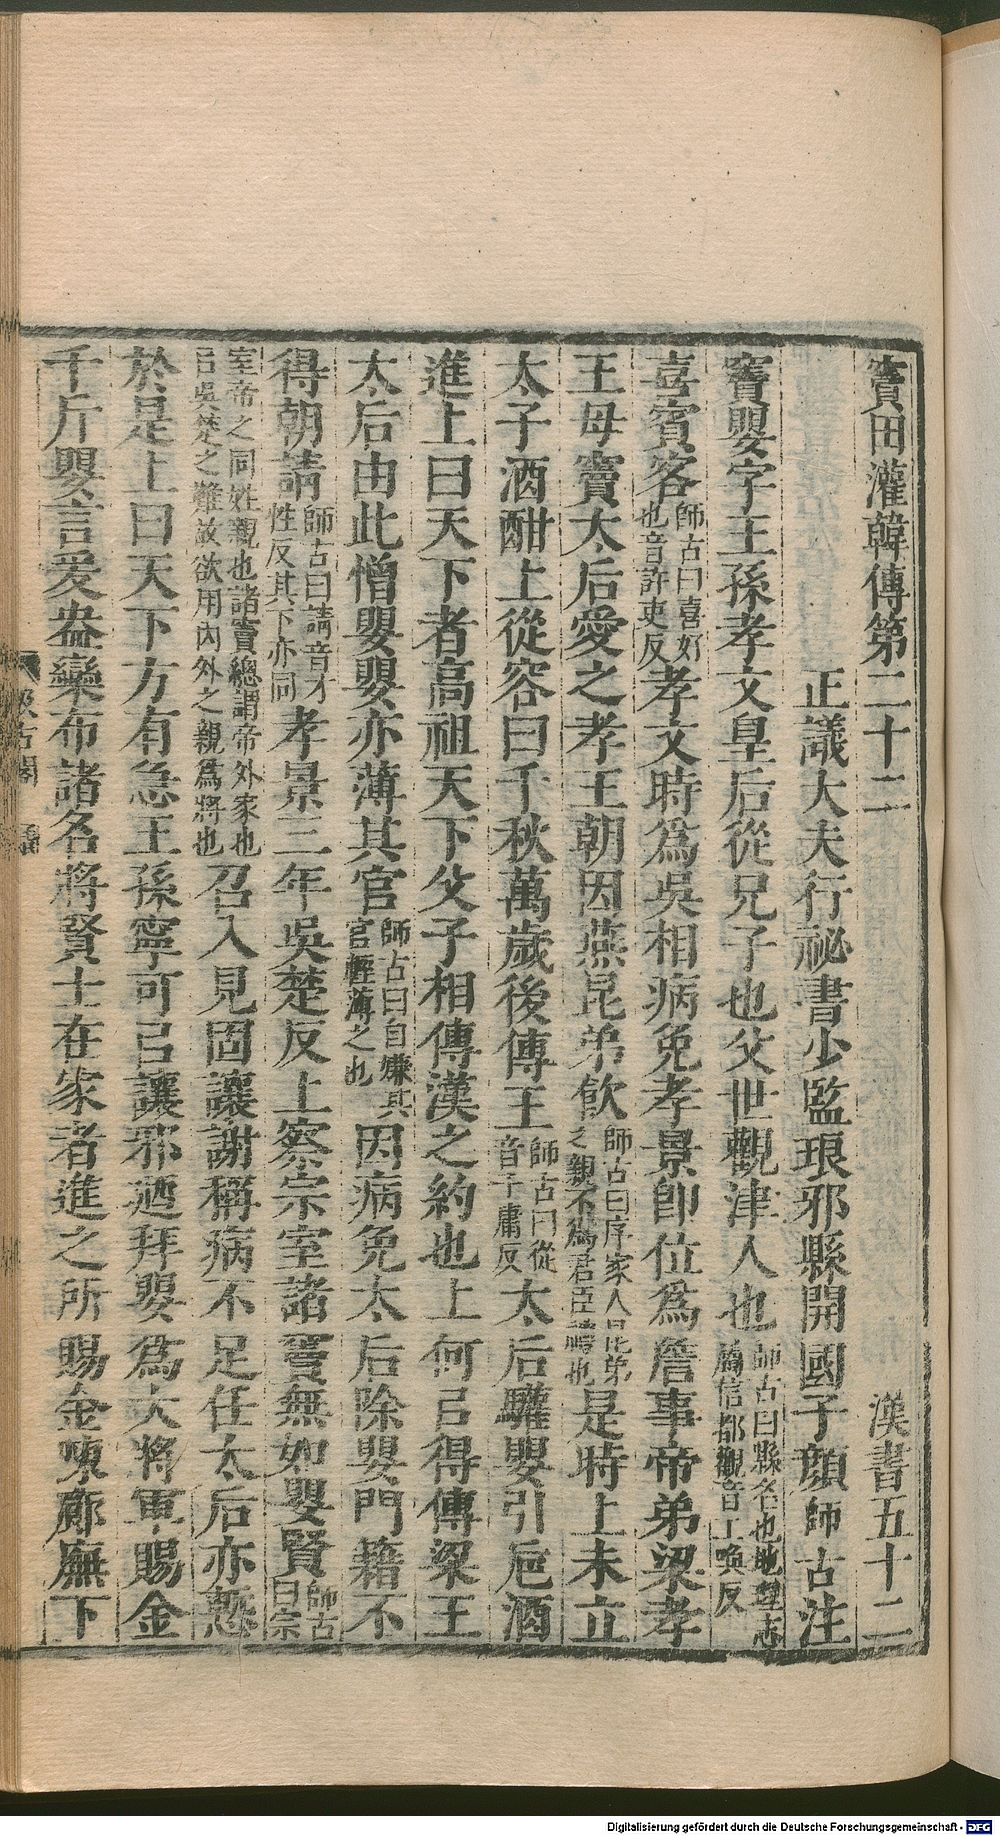 竇田灌韓傳第二十二 漢書五十二
正議大夫行祕書少監琅邪縣開國子顏師古注
竇嬰字王孫孝文皇后從兄子也父世觀津人也師古曰縣名也地理志屬信都觀音工喚反
喜賓客師古曰喜好也音許吏反孝文時爲吳相病免孝景卽位爲詹事帝弟梁孝
王母竇太后愛之孝王朝因燕昆弟飮師古曰序家人昆弟之親不爲君臣禮也是時上未立
太子酒酣上從容曰千秋萬歲後傳王師古曰從音千庸反太后驩嬰引巵酒
進上曰天下者高祖天下父子相傳漢之約也上何㠯得傳梁王
太后由此憎嬰嬰亦薄其官師古曰自嫌其官輕薄之也因病免太后除嬰門籍不
得朝請師古曰請音才性反其下亦同孝景三年吳楚反上察宗室諸竇無如嬰賢師古曰宗
室帝之同姓親也諸竇總謂帝外家也㠯吳楚之難故欲用內外之親爲將也召入見固讓謝稱病不足任太后亦慙
於是上曰天下方有急王孫寧可㠯讓邪迺拜嬰爲大將軍賜金
千斤嬰言爰盎欒布諸名將賢士在家者進之所賜金陳廊廡下
汲古閣
Digitalisierung gefördert durch die Deutsche Forschungsgemeinschaft - DFG